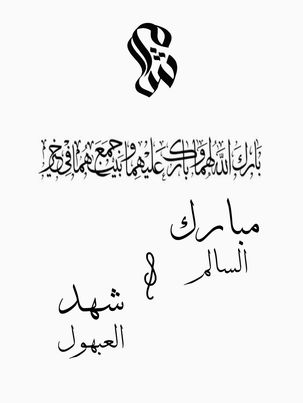 بارك الله لهما وبارك عليهما وجمع بينهما في خير
مبارك
السالم
&
شهد
العبهول